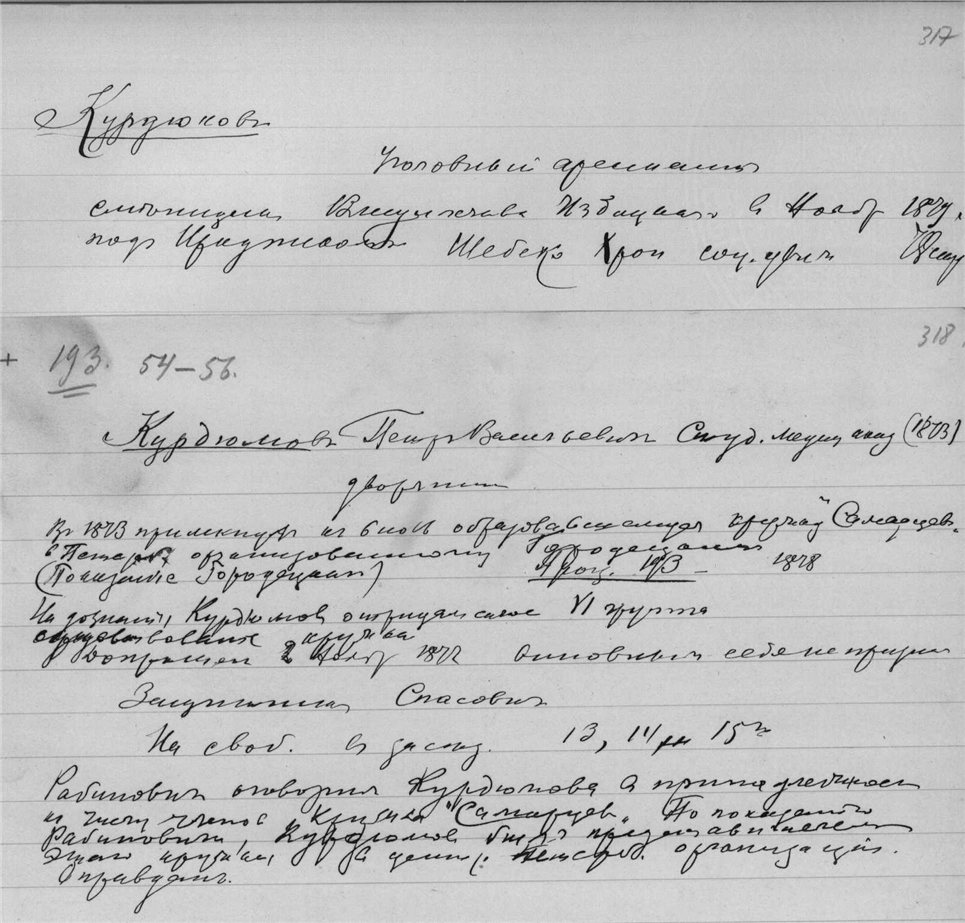 317
Курдюковъ
Уголовный арестантъ
Избицкаго в Нояб 1879
подъ Шебеко Хрон соц. движ
318
+ 193. 54–56.
Курдюмовъ Петръ Васильевичъ Студ. медиц акад (1873)
дворянинъ
Въ 1873 примкнулъ къ вновь образовавшемуся кружку "Самарцев"
в Петерб организованному Городецкимъ
(Показание Городецкаго) Проц. 193 – 1878
На дознании, Курдюмов отрицал свое VI группа
существование кружка
Допрошен 2 Нояб 1877 виновным себя не призн
Защитникъ Спасович
На своб. в засед. 13, 14 и 15
Рабинович оговорил Курдюмова в принадлежности
к числу членов Кружка "Самарцев". По показанию
Рабиновича, Курдюмов был представителем
этого кружка, в центр. Петерб. организации.
Оправданъ.